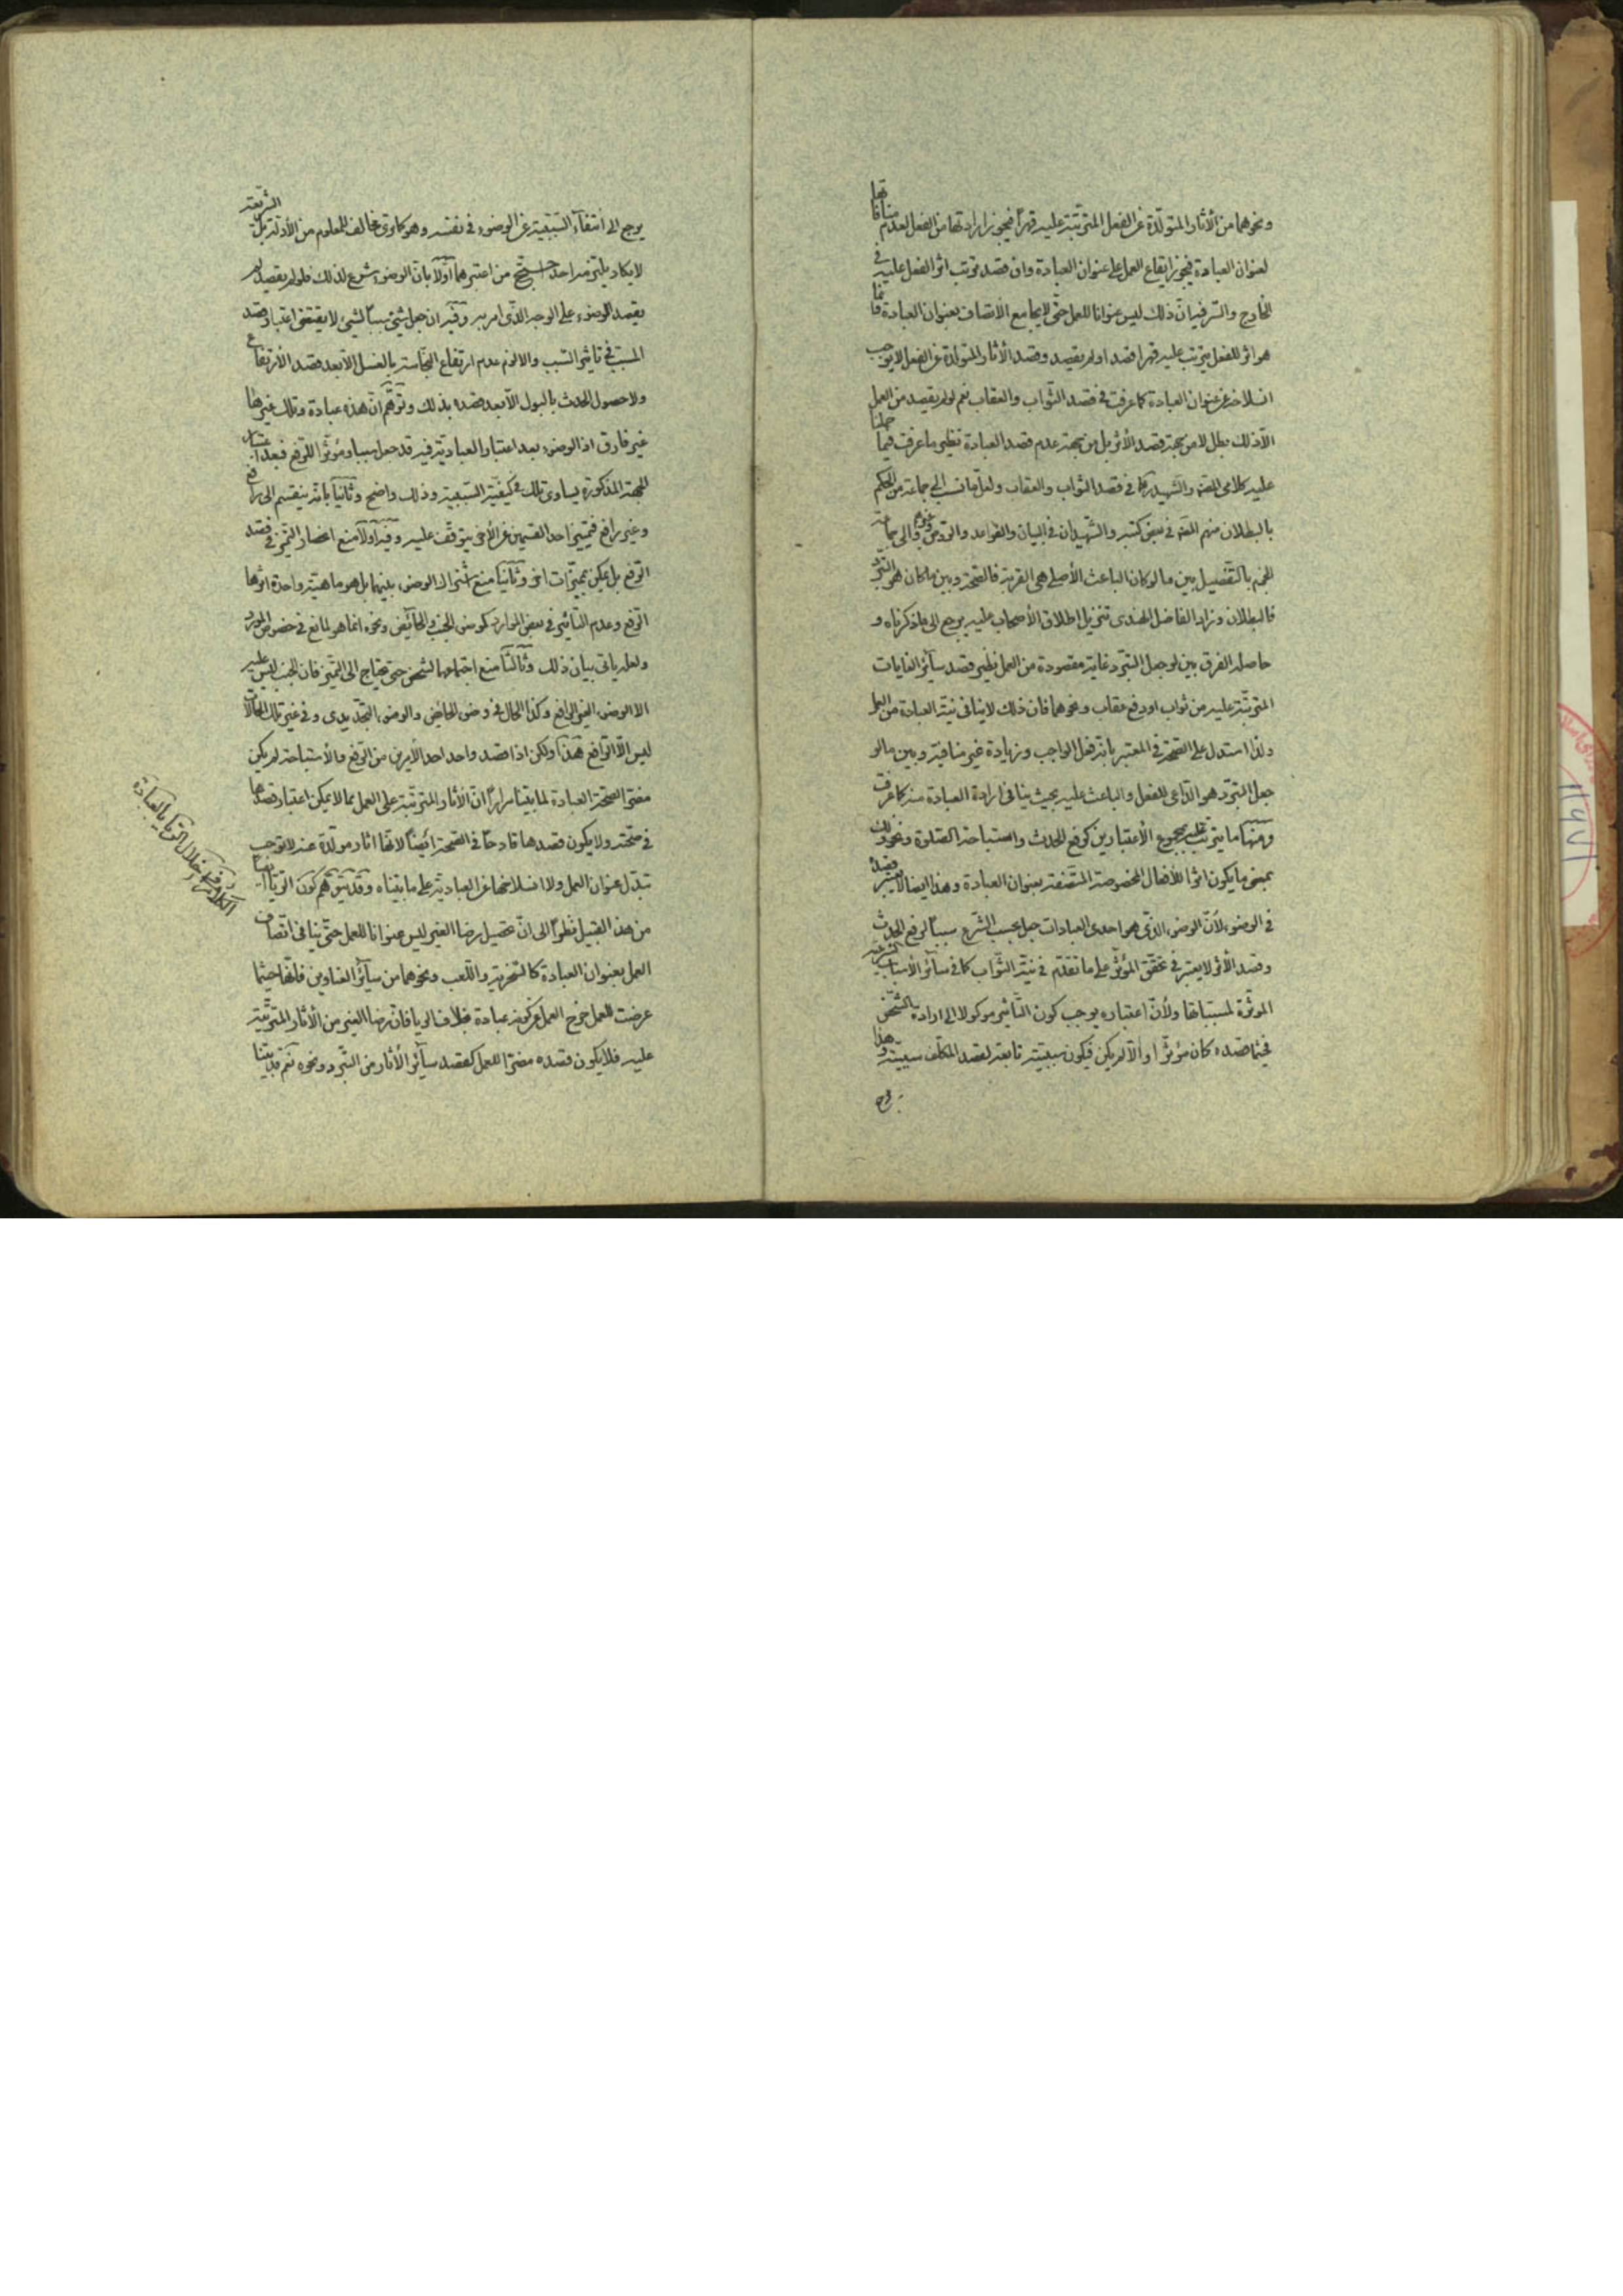 ونحوهما من الأثار المتولّدة عن الفعل المترتّبة عليه قهراً فيجوز ارادتها من الفعل لعدم منافاتها
لعنوان العبادة فيجوز ايقاع العمل على عنوان العبادة وان قصد ترتب اثر الفعل عليه في
الخارج والسّر فيه انّ ذلك ليس عنوانا للعمل حتّى لا يجامع الاتصاف بعنوان العبادة فانما
هو اثر للفعل يترتب عليه قهرا قصد او لم يقصد وقصد الأثار المتولدة عن الفعل لا يوجب
انسلاخه عن عنوان العبادة كما عرفت في قصد الثواب والعقاب نعم لو لم يقصد من العمل
الّا ذلك بطل لا من جهة قصد الأثر بل من جهة عدم قصد العبادة نظير ما عرفت فيما حملنا
عليه كلامى العلامة والشهيد في قصد الثواب والعقاب ولعل ما نسب الى جماعة من الحكم
بالبطلان منهم العلامة في بعض كتبه والشّهيدان في البيان والقواعد والروض وغيرهم والى جماعة
للجزم بالتفصيل بين ما لو كان الباعث الأصلى هى القربة فالصحّة وبين ما كان هو التبرّد
فالبطلان وزاد الفاضل الهندى تنزيل اطلاق الأصحاب عليه يرجع الى ما ذكرناه و
حاصله الفرق بين لو جعل التبرّد غاية مقصودة من العمل نظير قصد سآئر الغايات
المترتّبة عليه من ثواب او دفع عقاب ونحوهما فان ذلك لا ينافى نيّة العبادة من العمل
ولذا استدل على الصحّة في المعتبر بانه فعل الواجب وزيادة غير منافية وبين ما لو
جعل التبرّد هو الدّاعى للفعل والباعث عليه بحيث ينافى ارادة العبادة منه كما عرفت
ومنها ما يترتب عليه بمجموع الأعتبارين كرفع الحدث واستباحة الصّلوة ونحو ذلك
بمعنى ما يكون اثرا للأفعال المخصوصة المتّصفة بعنوان العبادة وهذا ايضا لا يعتبر قصده
في الوضوء لأنّ الوضوء الذى هو احدى العبادات جعل بحسب الشّرع سبباً لرفع الحدث
وقصد الأثر لا يعتبر في تحقّق المؤثّر على ما تقدّم في نيّة الثّواب كما في سآئر الأسباب الشرعية
الموثّرة لمسبّباتها ولأنّ اعتباره يوجب كون التّأثير موكولا الى ارادة الشخص
فحيثما قصده كان مؤثّرا والّا لم يكن فيكون سببيّته تابعة لقصد المكلّف سببيّته وهذا
يرجع
يرجع الى انتفآء السّببيّة عن الوضوء في نفسه وهو كما ترى مخالف للمعلوم من الأدلّة الشريعة بل
لا يكاد يلتزمه احد احتج من اعتبرهما اوّلا بانّ الوضوء شرع لذلك فلو لم يقصد لم
يقصد الوضوء على الوجه الذّى امر به وفيه ان جعل شئ سبباً لشئ لا يقتضى اعتبار قصد
المسبّب في تاثير السّبب والا لزم عدم ارتفاع النجّاسة بالغسل الّا بعد قصد الأرتفاع
ولا حصول الحدث بالبول الّا بعد قصده بذلك وتوهّم انّ هذه عبادة وتلك غيرها
غير فارق اذ الوضوء بعد اعتبار العباديّة فيه قد جعل سببا ومؤثّرا للرّفع فبعد اعتبار
الجهة المذكورة يساوى تلك في كيفيّة السّببيّة وذلك واضح وثانيا بانّه ينقسم الى رافع
وغير رافع فتمييز احد القسمين عن الأخر يتوقّف عليه وفيه اوّلا منع انحصار التميّز في قصد
الرّفع بل يمكن بمميّزات اخر وثانيا منع اشتراك الوضوء بينهما بل هو ماهيّة واحدة اثرها
الرّفع وعدم التأثير في بعض الموارد كوضوء الجنب والحآئض ونحوه انما هو لمانع في خصوص المورد
ولعله ياتى بيان ذلك وثالثا منع اجتماعهما لشخص حتى يحتاج الى التّميز فان الجنب ليس عليه
الا الوضوء الغير الرافع وكذا الحال في وضوء الحايض والوضوء التّجديدى وفي غير تلك الحالات
ليس الّا الرّافع هذا ولكن اذا قصد واحد احد الأمرين من الرّفع والأستباحة لم يكن
مضرّا لصحّة العبادة لما بيّنا مرارا انّ الأثار المترتّبة على العمل مما لا يمكن اعتبار قصدها
في صحّته ولا يكون قصدها قادحاً في الصّحة ائيضاً لأنها اثار مولّدة عنه لا توجب
تبدّل عنوان العمل ولا انسلاخها عن العباديّة على ما بيّناه وقد يتوهّم كون الرّيا ايضاً
من هذا القبيل نظراً الى انّ تحصيل رضا الغير ليس عنوانا للعمل حتّى ينافى اتّصاف
العمل بعنوان العبادة كالسّخرية واللّعب ونحوهما من سآئر العناوين فانّها حيثما
عرضت للعمل خرج العمل عن كونه عبادة بخلاف الريا فانّ رضا الغير من الأثار المترتّبة
عليه فلا يكون قصده مضرّا للعمل كقصد سآئر الأثار من التّبرد ونحوه نعم قد بيّنا
الكلام في اخلال الريا بالعبادة